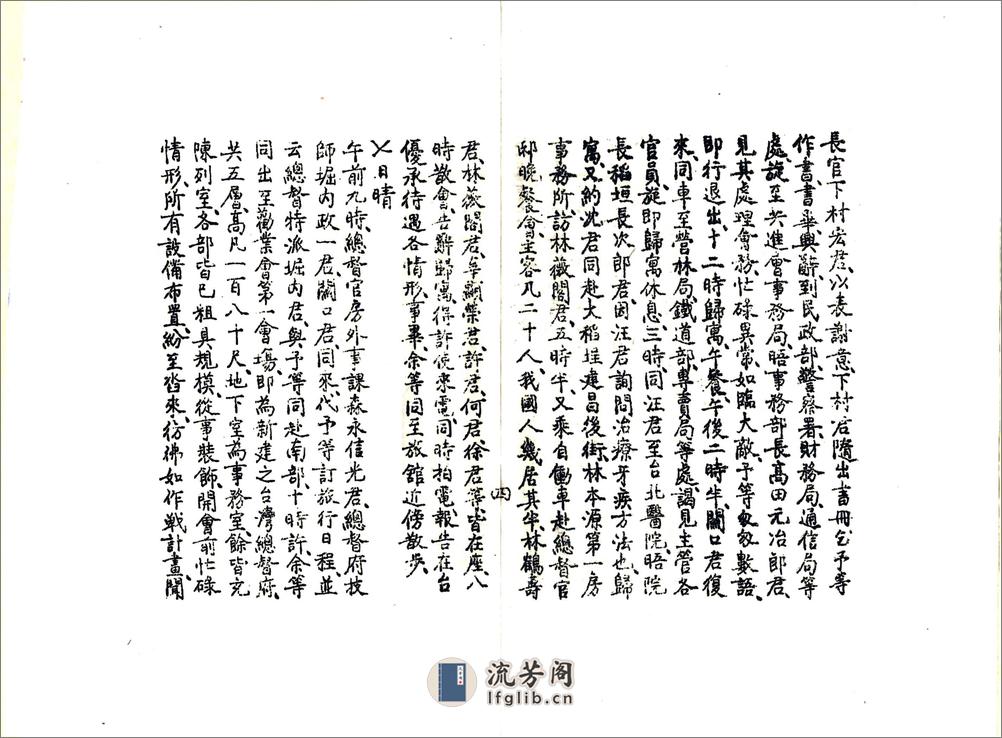 長官下村宏君、以表謝意、下村君隨出書冊、乞予等
作書、書畢、興辭、到民政部、警察署、財務局、通信局等
處、旋至共進會事務局、晤事務部長高田元治郎君、
見其處理會務、忙碌異常、如臨大敵、予等匆匆數語、
即行退出、十二時歸寓、午餐、午後二時半、關口君復
來、同車至營林局、鐵道部、專賣局等處、謁見主管各
官員、旋即歸寓休息、三時同汪君至台北醫院、晤院
長稻垣長次郎君、因汪君詢問治療牙疾方法也、歸
寓、又約沈君同赴大稻埕建昌後街、林本源第一房
事務所、訪林薇閣君、五時半、又乘自働車赴總督官
邸晚餐會、主客凡二十人、我國人幾居其半、林鶴壽
四
君、林薇閣君、辜顯榮君、許君、何君、徐君等、皆在座、八
時散會、告辭歸寓、得許使來電、同時拍電、報告在台
優承待遇各情形、事畢、余等同至旅館近傍散步、
乂日晴
午前九時、總督官房外事課森永信光君、總督府技
師堀內政一君、關口君同來、代予等訂旅行日程、並
云總督特派堀內君、與予等同赴南部、十時許、余等
同出至勸業會第一會場、即為新建之台灣總督府、
共五層、高凡一百八十尺、地下室為事務室、餘皆充
陳列室、各部皆已粗具規模、從事裝飾、開會前忙碌
情形、所有設備布置、紛至沓來、彷彿如作戰計畫、聞
流芳阁
lfglib.cn